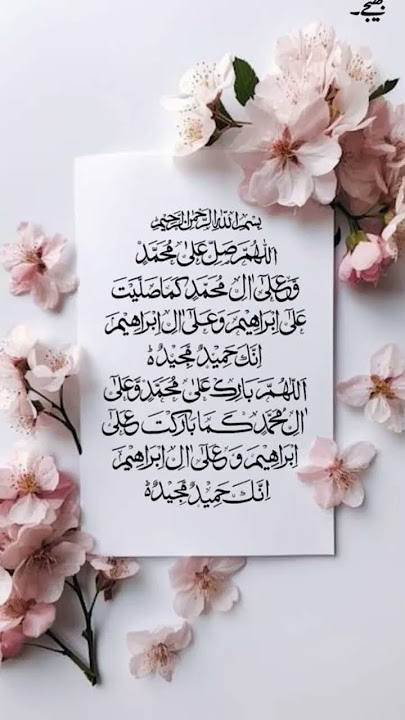 بھیجے۔
بسم اللہ الرحمن الرحیم
اَللّٰھُمَّ صَلِّ عَلٰی مُحَمَّدٍ
وَّعَلٰٓی اٰلِ مُحَمَّدٍ کَمَا صَلَّیْتَ
عَلٰٓی اِبْرَاھِیْمَ وَعَلٰٓی اٰلِ اِبْرَاھِیْمَ
اِنَّکَ حَمِیْدٌ مَّجِیْدٌ ؕ
اَللّٰھُمَّ بَارِکْ عَلٰی مُحَمَّدٍ وَّعَلٰٓی
اٰلِ مُحَمَّدٍ کَمَا بَارَکْتَ عَلٰٓی
اِبْرَاھِیْمَ وَعَلٰٓی اٰلِ اِبْرَاھِیْمَ
اِنَّکَ حَمِیْدٌ مَّجِیْدٌ ؕ